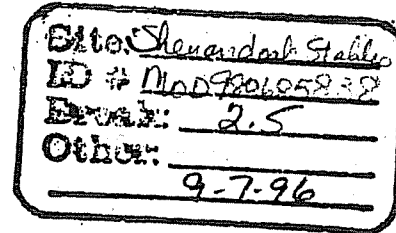 Site: Shenandoah Stables
ID # MOD980685838
Break: 2.5
Other:
9-7-96